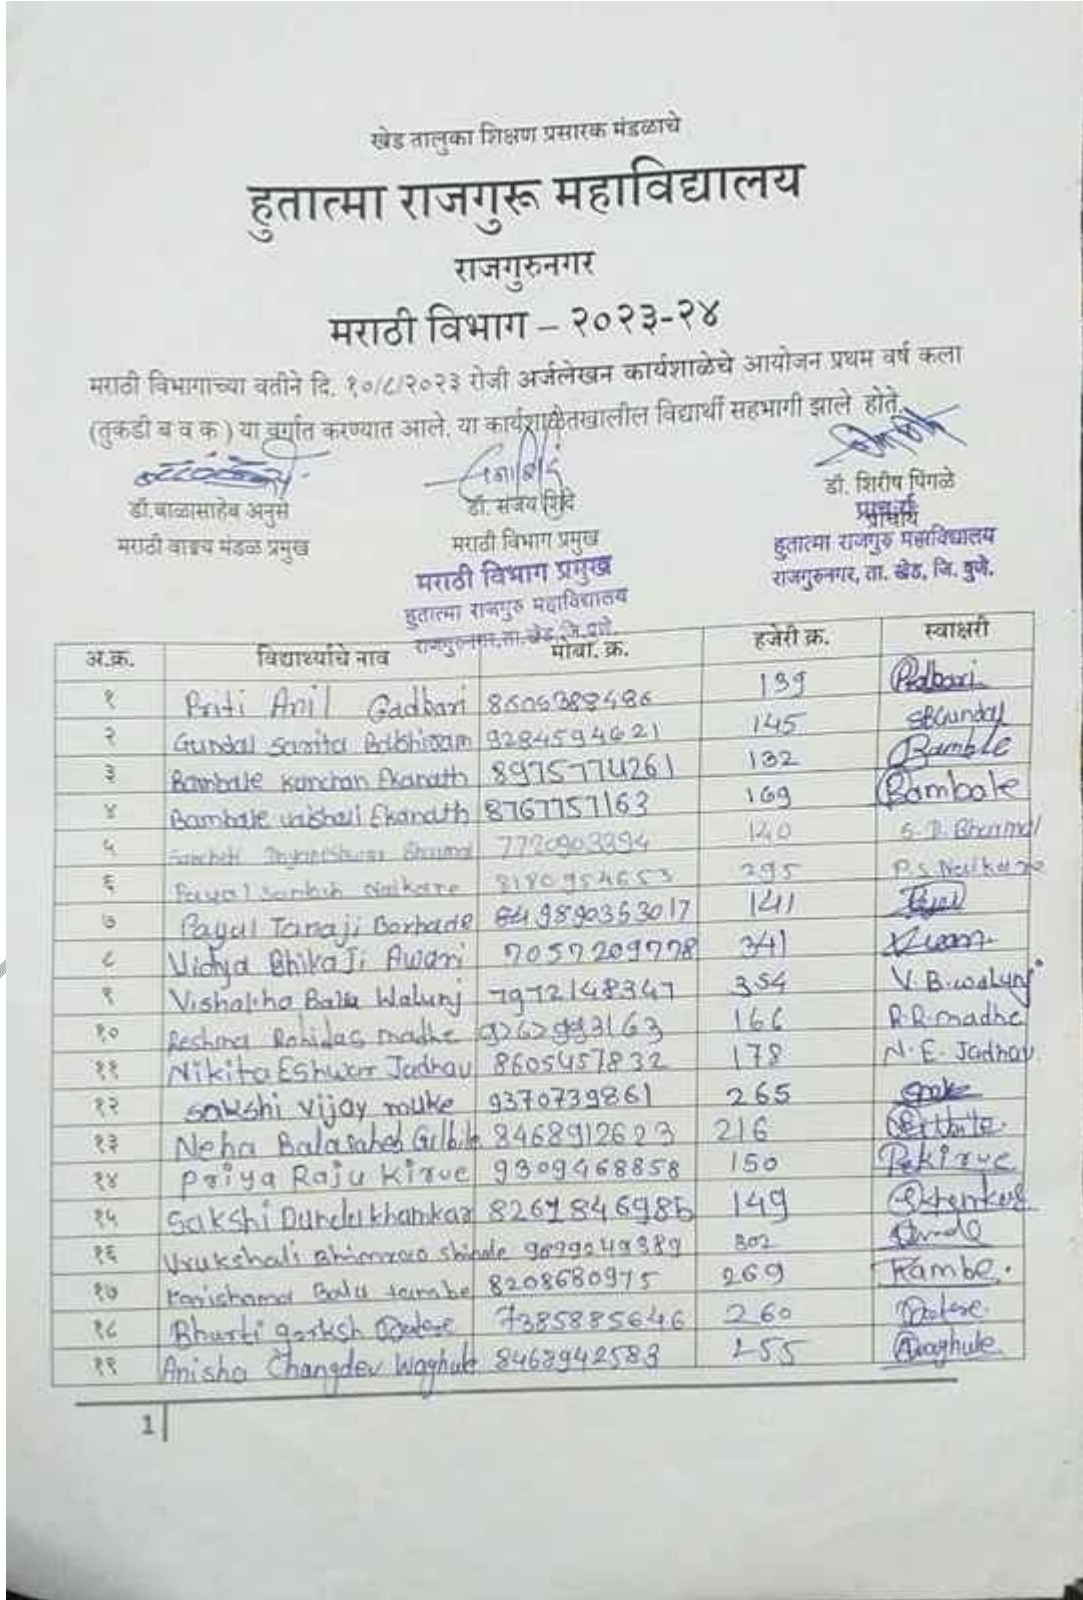 खेड तालुका शिक्षण प्रसारक मंडळाचे
हुतात्मा राजगुरू महाविद्यालय
राजगुरुनगर
मराठी विभाग – २०२३-२४
मराठी विभागाच्या वतीने दि. १०/८/२०२३ रोजी अर्जलेखन कार्यशाळेचे आयोजन प्रथम वर्ष कला
(तुकडी ब व क ) या वर्गात करण्यात आले. या कार्यशाळेतखालील विद्यार्थी सहभागी झाले होते.
डॉ.बाळासाहेब अनुसे डॉ. संजय शिंदे डॉ. शिरीष पिंगळे
मराठी वाङ्मय मंडळ प्रमुख मराठी विभाग प्रमुख प्राचार्य
मराठी विभाग प्रमुख हुतात्मा राजगुरु महाविद्यालय
हुतात्मा राजगुरु महाविद्यालय राजगुरुनगर, ता. खेड, जि. पुणे.
राजगुरुनगर,ता.खेड,जि.पुणे.
अ.क्र. विद्यार्थ्याचे नाव मोबा. क्र. हजेरी क्र. स्वाक्षरी
१ Priti Anil Gadbari 139
२ Gundal Sarita 9284594621 145 SBGundal
३ Bambale Kanchan Ekanath 8975774261 132 Bamble
४ Bambale Vaishali Ekanath 8767757163 169 Bambale
५ 7720903394 140
६ Payal Santosh Naikare 8180954653 295 P.S Naikare
७ Payal Tanaji Borhade 9890363017 141
८ Vidya Bhikaji Awari 7057209778 341
९ Walunj 7972148347 354 V.B.walunj
१० Reshma Rohidas madhe 166 R.R.madhe
११ Nikita Eshwar Jadhav 8605457832 178 N.E. Jadhav
१२ sakshi vijay muke 9370739861 265
१३ Neha Balasaheb 8468912623 216
१४ Priya Raju Kirve 9309468858 150 P.Kirve
१५ Sakshi Khamkar 149
१६ Vrukshali Bhimrao Shinde 302
१७ Karishama Balu tambe 8208680975 269
१८ Bharti 7385885646 260
१९ Anisha Changdev Waghule 8468942583 255 Waghule.
1